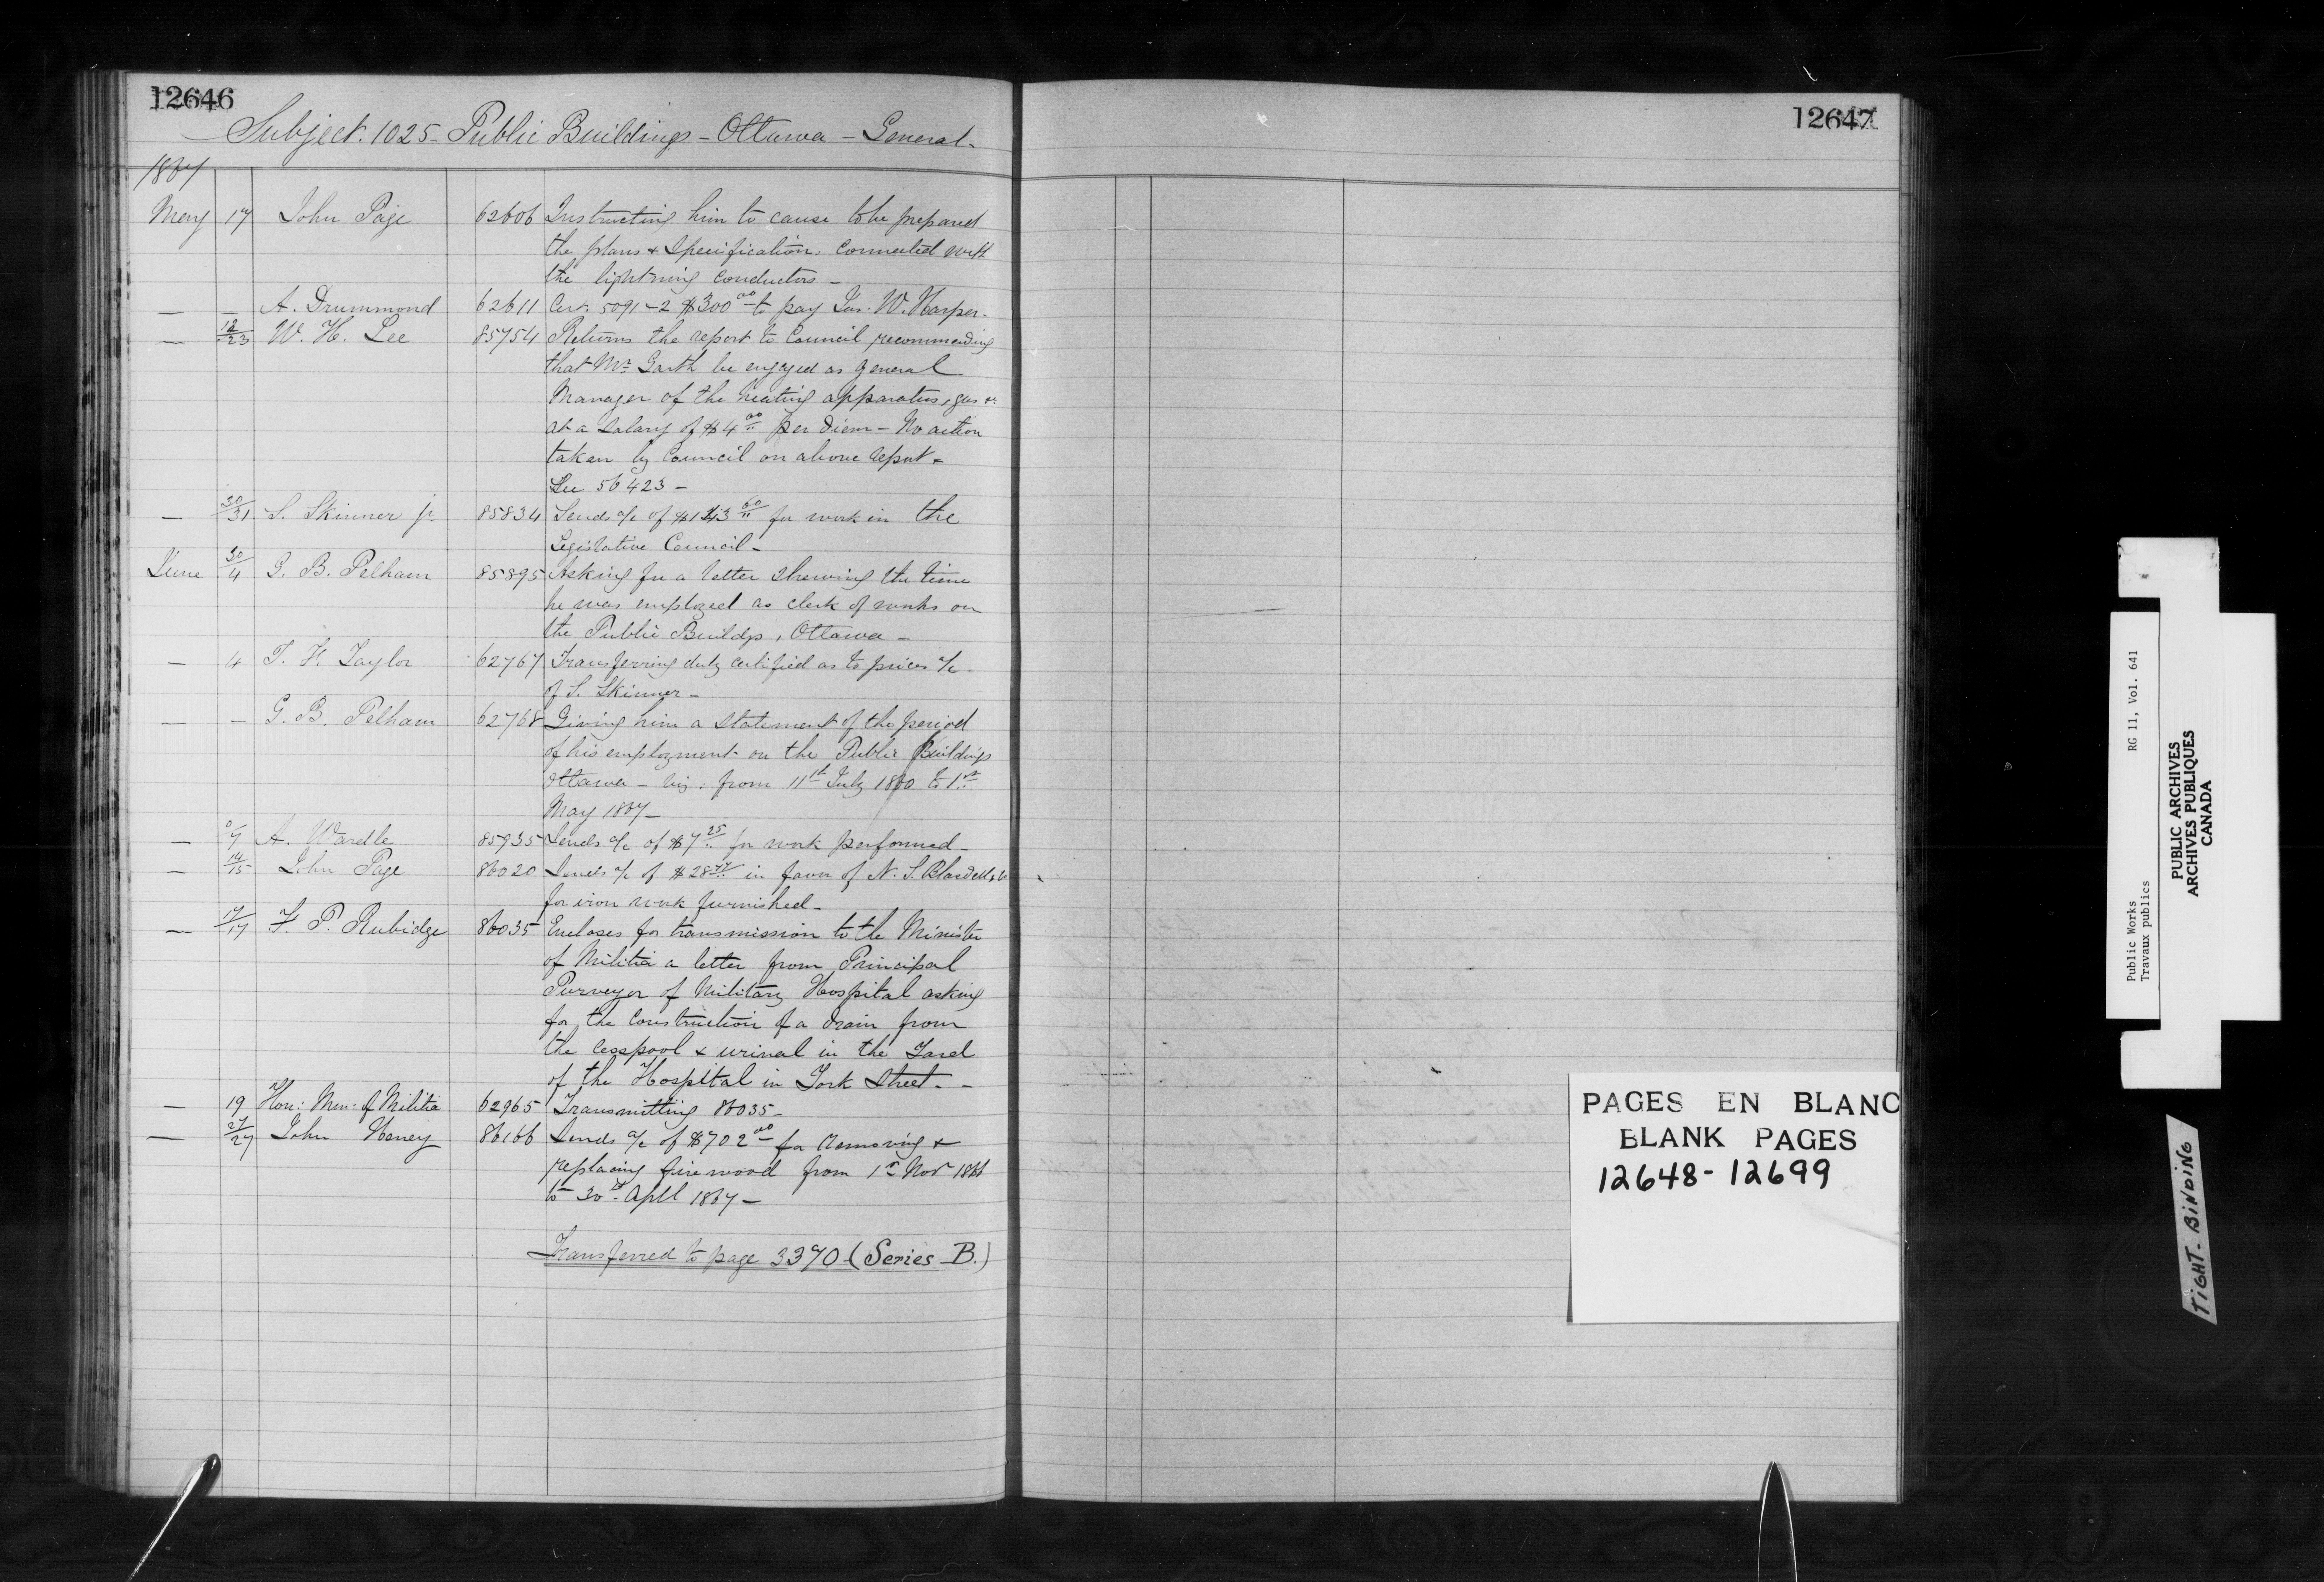 12646
Subject. 1025 - Public Buildings - Ottawa - General.
1867
May 17 John Page 62606 Instructing him to cause to be prepared
the plans & Specification. Connected with
the lightning conductors -
— — A. Drummond 62611 Cert. 5091-2 $300 00 to pay Jas. W. Harper.
— 18/23 W. H. Lee 85754 Returns the report to Council recommending
that Mr Garth be engaged as General
Manager of the heating apparatus, gas &c
at a salary of $4 00 per diem - No action
taken by Council on above report -
See 56423 -
— 30/31 S. Skinner jr. 85834 Sends a/c of $143 60 for work in the
Legislative Council -
June 30/4 G. B. Pelham 85895 Asking for a letter shewing the time
he was employed as clerk of works on
the Public Buildgs, Ottawa -
— 4 T. H. Taylor 62767 Transferring duly certified as to prices a/c
of S. Skinner -
— — G. B. Pelham 62768 Giving him a statement of the period
of his employment on the Public Buildings
Ottawa - viz: from 11th July 1860 to 1st
May 1867 -
— 6/7 A. Wardle 85935 Sends a/c of $7 25 for work performed -
— 14/15 John Page 86020 Sends a/c of $28 in favor of N. S. Blasdell & Co
for iron work furnished -
— 17/17 F. P. Rubidge 86035 Encloses for transmission to the Minister
of Militia a letter from Principal
Purveyor of Military Hospital asking
for the construction of a drain from
the cesspool & urinal in the Yard
of the Hospital in York Street. -
— 19 Hon: Min: of Militia 62965 Transmitting 86035 -
— 27/27 John Heney 86166 Sends a/c of $702 00 for removing &
replacing fire wood from 1st Nov 1866
to 30th Apll 1867 -
Transferred to page 3370 (Series B.)
12647
PAGES EN BLANC
BLANK PAGES
12648 - 12699
Public Works RG 11, Vol. 641
Travaux publics
PUBLIC ARCHIVES
ARCHIVES PUBLIQUES
CANADA
TIGHT-BINDING